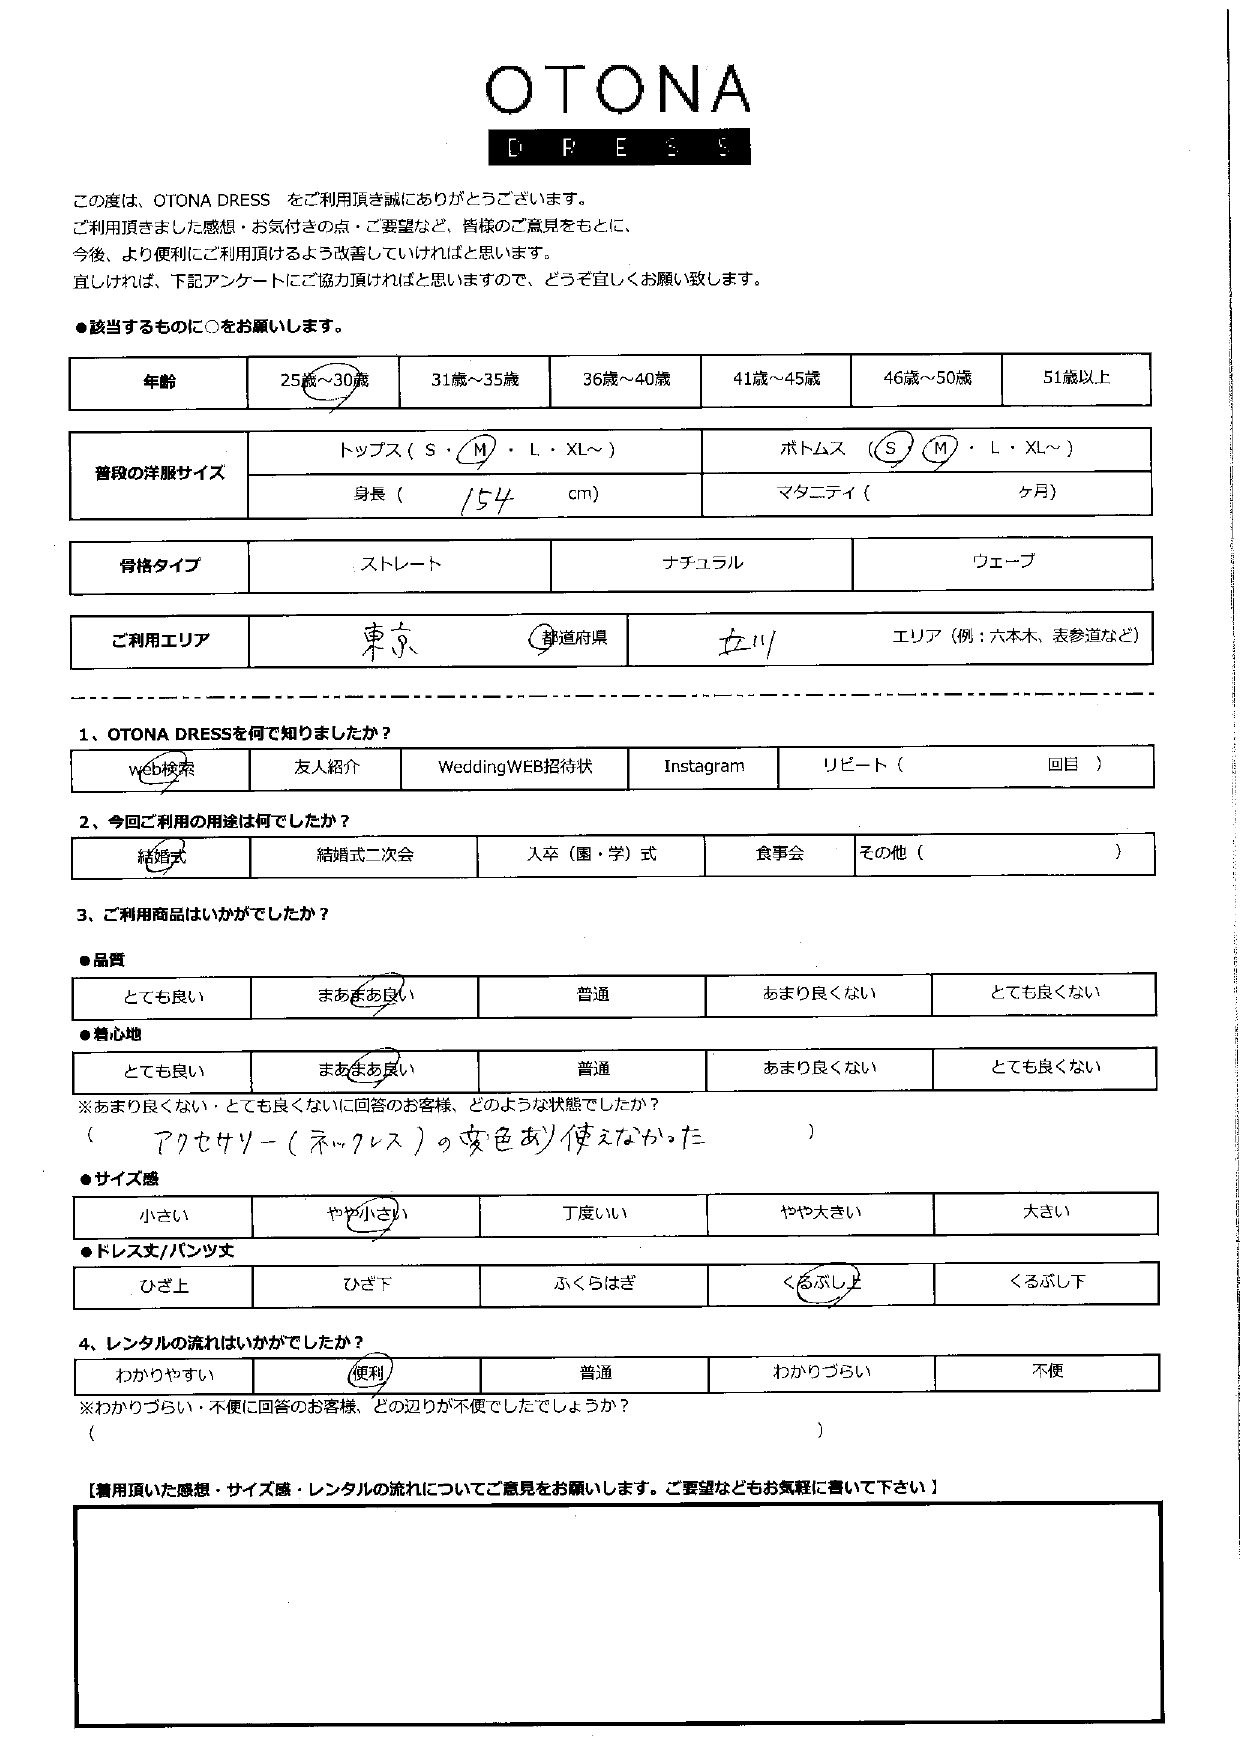 OTONA
DRESS
この度は、OTONA DRESS をご利用頂き誠にありがとうございます。
ご利用頂きました感想・お気付きの点・ご要望など、皆様のご意見をもとに、
今後、より便利にご利用頂けるよう改善していければと思います。
宜しければ、下記アンケートにご協力頂ければと思いますので、どうぞ宜しくお願い致します。
●該当するものに○をお願いします。
年齢 25歳～30歳 31歳～35歳 36歳～40歳 41歳～45歳 46歳～50歳 51歳以上
普段の洋服サイズ トップス ( S ・ M ・ L ・ XL～ ) ボトムス ( S M ・ L ・ XL～ )
身長 ( 154 cm) マタニティ ( ケ月)
骨格タイプ ストレート ナチュラル ウェーブ
ご利用エリア 東京 都道府県 立川 エリア（例：六本木、表参道など）
1、OTONA DRESSを何で知りましたか？
web検索 友人紹介 WeddingWEB招待状 Instagram リピート（ 回目 ）
2、今回ご利用の用途は何でしたか？
結婚式 結婚式二次会 入卒（園・学）式 食事会 その他（ ）
3、ご利用商品はいかがでしたか？
●品質
とても良い まあまあ良い 普通 あまり良くない とても良くない
●着心地
とても良い まあまあ良い 普通 あまり良くない とても良くない
※あまり良くない・とても良くないに回答のお客様、どのような状態でしたか？
（ アクセサリー(ネックレス)の変色あり使えなかった ）
●サイズ感
小さい やや小さい 丁度いい やや大きい 大きい
●ドレス丈/パンツ丈
ひざ上 ひざ下 ふくらはぎ くるぶし上 くるぶし下
4、レンタルの流れはいかがでしたか？
わかりやすい 便利 普通 わかりづらい 不便
※わかりづらい・不便に回答のお客様、どの辺りが不便でしたでしょうか？
（ ）
【着用頂いた感想・サイズ感・レンタルの流れについてご意見をお願いします。ご要望などもお気軽に書いて下さい 】